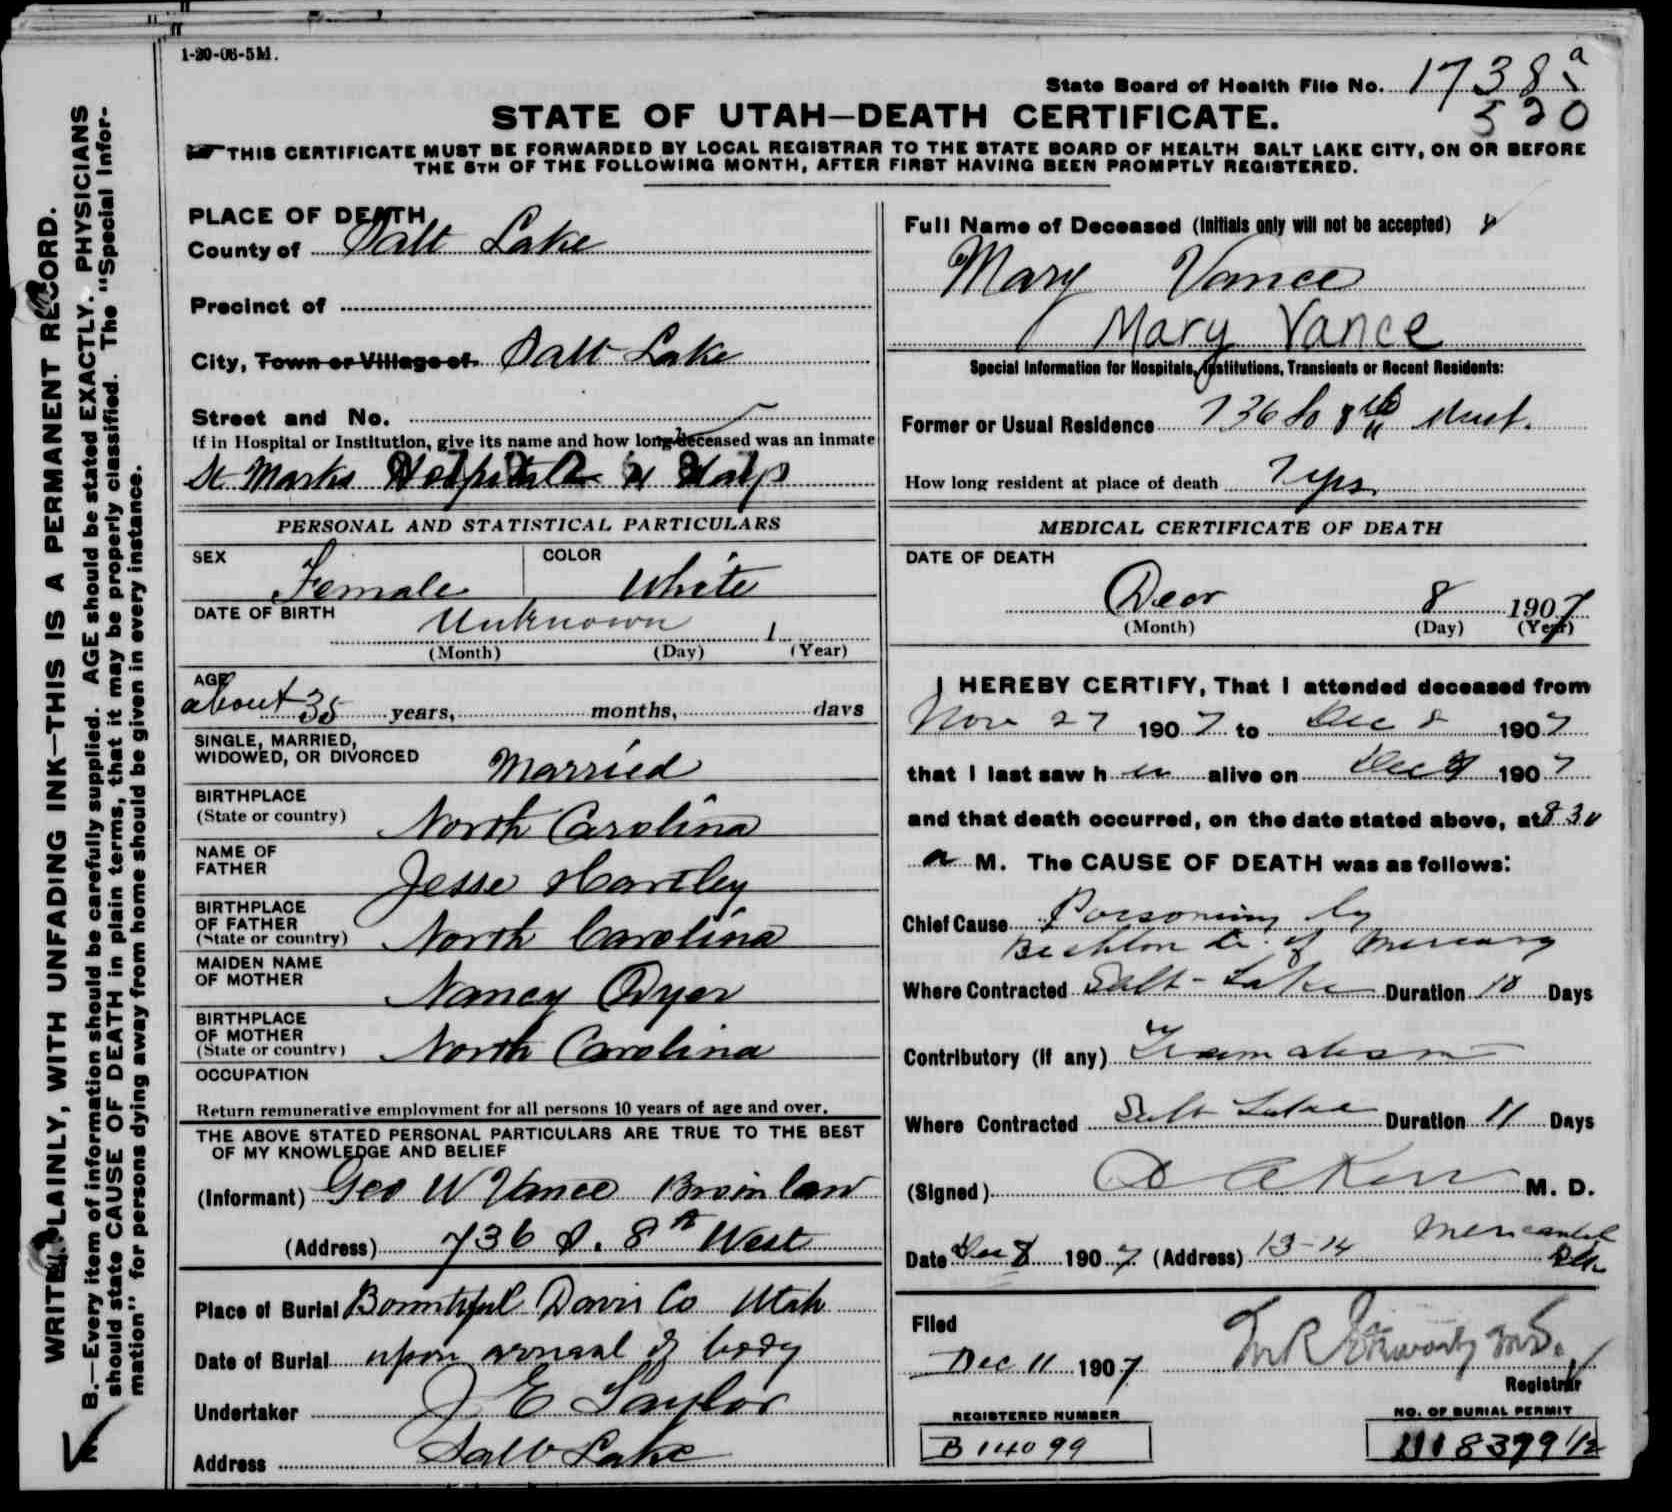 1-20-06-5M.
State Board of Health File No. 1738
520
STATE OF UTAH—DEATH CERTIFICATE.
THIS CERTIFICATE MUST BE FORWARDED BY LOCAL REGISTRAR TO THE STATE BOARD OF HEALTH SALT LAKE CITY, ON OR BEFORE
THE 5TH OF THE FOLLOWING MONTH, AFTER FIRST HAVING BEEN PROMPTLY REGISTERED.
WRITE PLAINLY, WITH UNFADING INK—THIS IS A PERMANENT RECORD.
N. B.—Every item of information should be carefully supplied. AGE should be stated EXACTLY. PHYSICIANS
should state CAUSE OF DEATH in plain terms, that it may be properly classified. The "Special Infor-
mation" for persons dying away from home should be given in every instance.
PLACE OF DEATH
County of Salt Lake
Precinct of
City, Town or Village of Salt Lake
Street and No.
If in Hospital or Institution, give its name and how long deceased was an inmate
St Marks Hospital 11 days
PERSONAL AND STATISTICAL PARTICULARS
SEX Female COLOR White
DATE OF BIRTH Unknown 1
(Month) (Day) (Year)
AGE
about 35 years, months, days
SINGLE, MARRIED,
WIDOWED, OR DIVORCED Married
BIRTHPLACE
(State or country) North Carolina
NAME OF
FATHER Jesse Hartley
BIRTHPLACE
OF FATHER
(State or country) North Carolina
MAIDEN NAME
OF MOTHER Nancy Dyer
BIRTHPLACE
OF MOTHER
(State or country) North Carolina
OCCUPATION
Return remunerative employment for all persons 10 years of age and over.
THE ABOVE STATED PERSONAL PARTICULARS ARE TRUE TO THE BEST
OF MY KNOWLEDGE AND BELIEF
(Informant) Geo W Vance Bro in law
(Address) 736 S. 8th West
Place of Burial Bountiful Davis Co Utah
Date of Burial upon arrival of body
Undertaker J E Taylor
Address Salt Lake
Full Name of Deceased (Initials only will not be accepted)
Mary Vance
Mary Vance
Special Information for Hospitals, Institutions, Transients or Recent Residents:
Former or Usual Residence 736 So 8th West.
How long resident at place of death 7 yrs
MEDICAL CERTIFICATE OF DEATH
DATE OF DEATH
Decr 8 1907
(Month) (Day) (Year)
I HEREBY CERTIFY, That I attended deceased from
Nov 27 1907 to Dec 8 1907
that I last saw h er alive on Dec 1907
and that death occurred, on the date stated above, at 8 30
a M. The CAUSE OF DEATH was as follows:
Chief Cause Poisoning by
Bichloride of Mercury
Where Contracted Salt-Lake Duration 10 Days
Contributory (if any)
Where Contracted Salt Lake Duration 11 Days
(Signed) M. D.
Date Dec 8 1907 (Address) 13-14 Mercantile
Filed
Dec 11 1907
Registrar
REGISTERED NUMBER
B 14099
NO. OF BURIAL PERMIT
8379 1/2